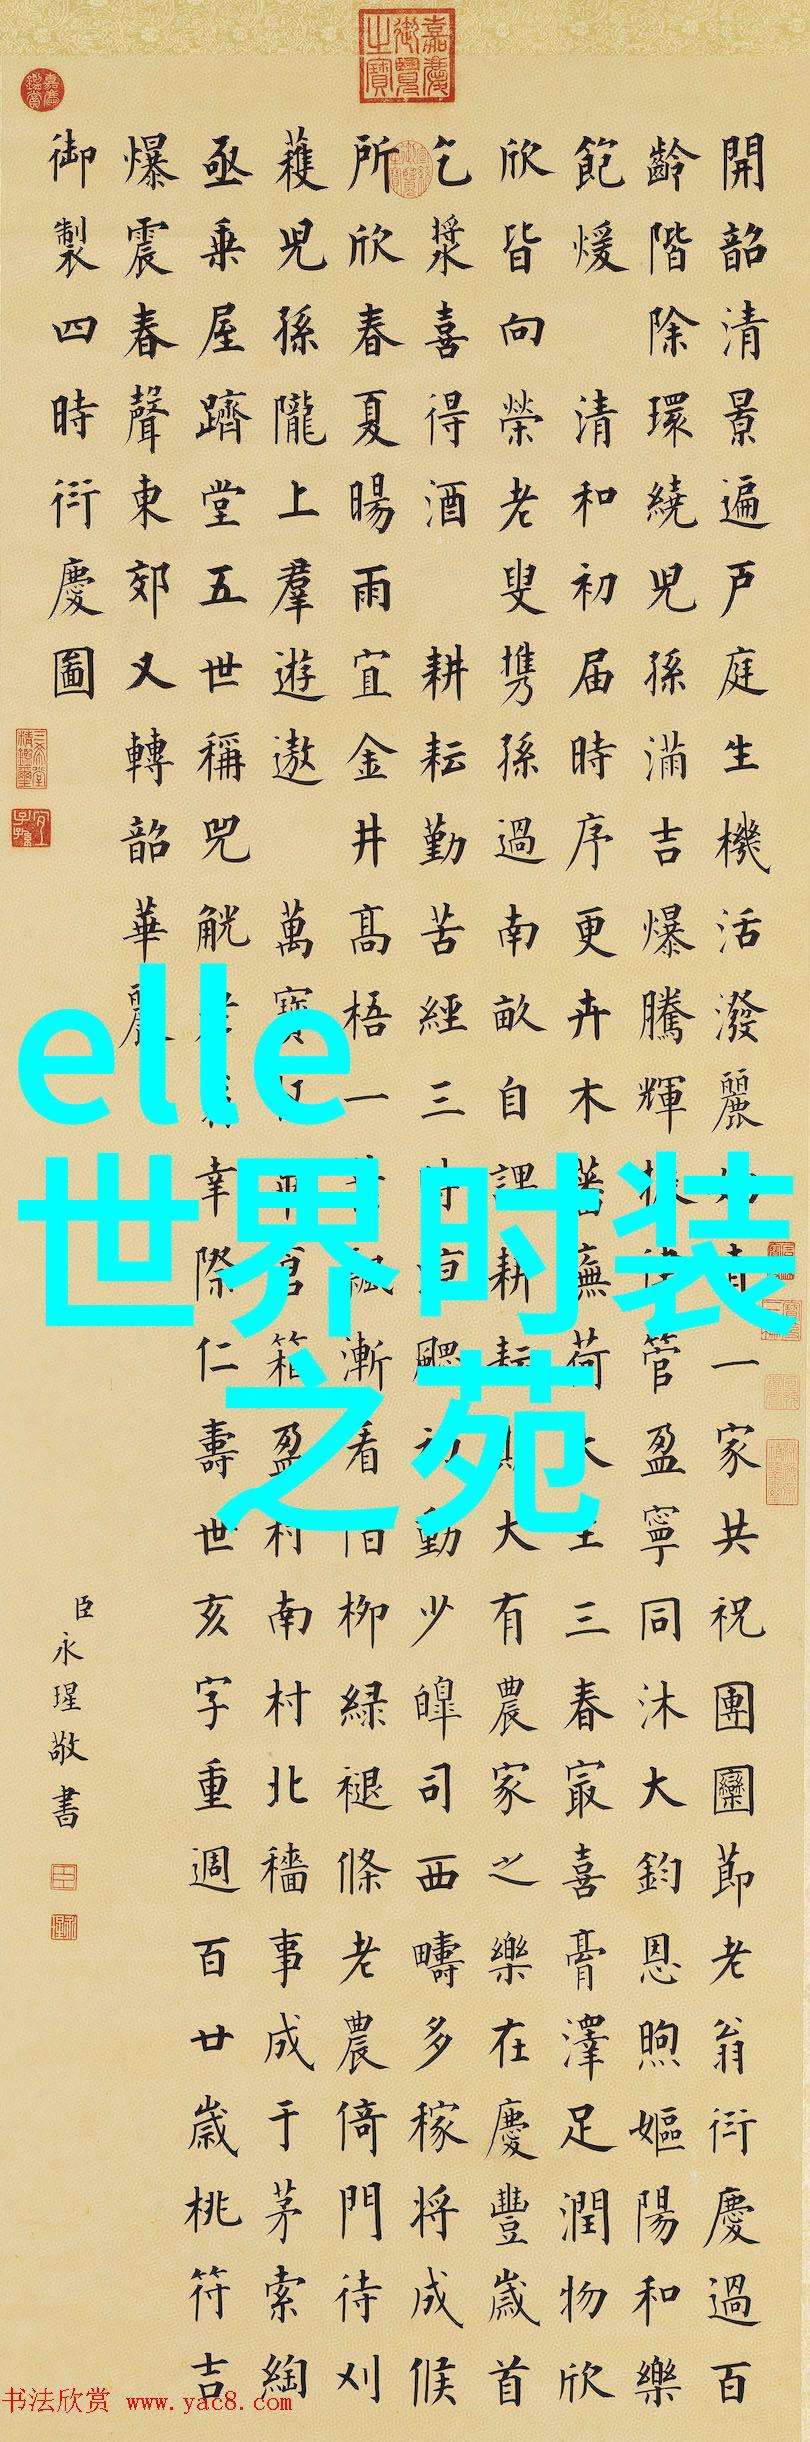 嘉慶御覽之寶
嘉慶鑑賞
開韶清景遍戶庭生機活潑麗一家共祝團圞節老翁衍慶過百
齡階除環繞兒孫滿吉爆騰輝管盈寧同沐大鈞恩煦嫗陽和樂
飽煖 清和初届時序更卉木蕃廡荷三春冣喜膏澤足潤物欣
欣皆向榮老叟携孫過南畝自課耕耘大有農家之樂在慶豐歲首
乞漿喜得酒 耕耘勤苦經三時颸初動少皡司西疇多稼將成候
所欣春夏暘雨宜金井高梧一葉飄漸看陌柳緑褪條老農倚門待刈
穫兒孫隴上羣遊遨 萬寶倉箱盈村南村北穡事成于茅索綯
亟乗屋躋堂五世稱兕觥幸際仁壽世亥字重週百廿歲桃符吉
爆震春聲東郊又轉韶華麗
御製四時衍慶圖
臣永瑆敬書
三希堂精鑑璽
宜子孫
elle
世界时装
之苑
书法欣赏 www.yac8.com